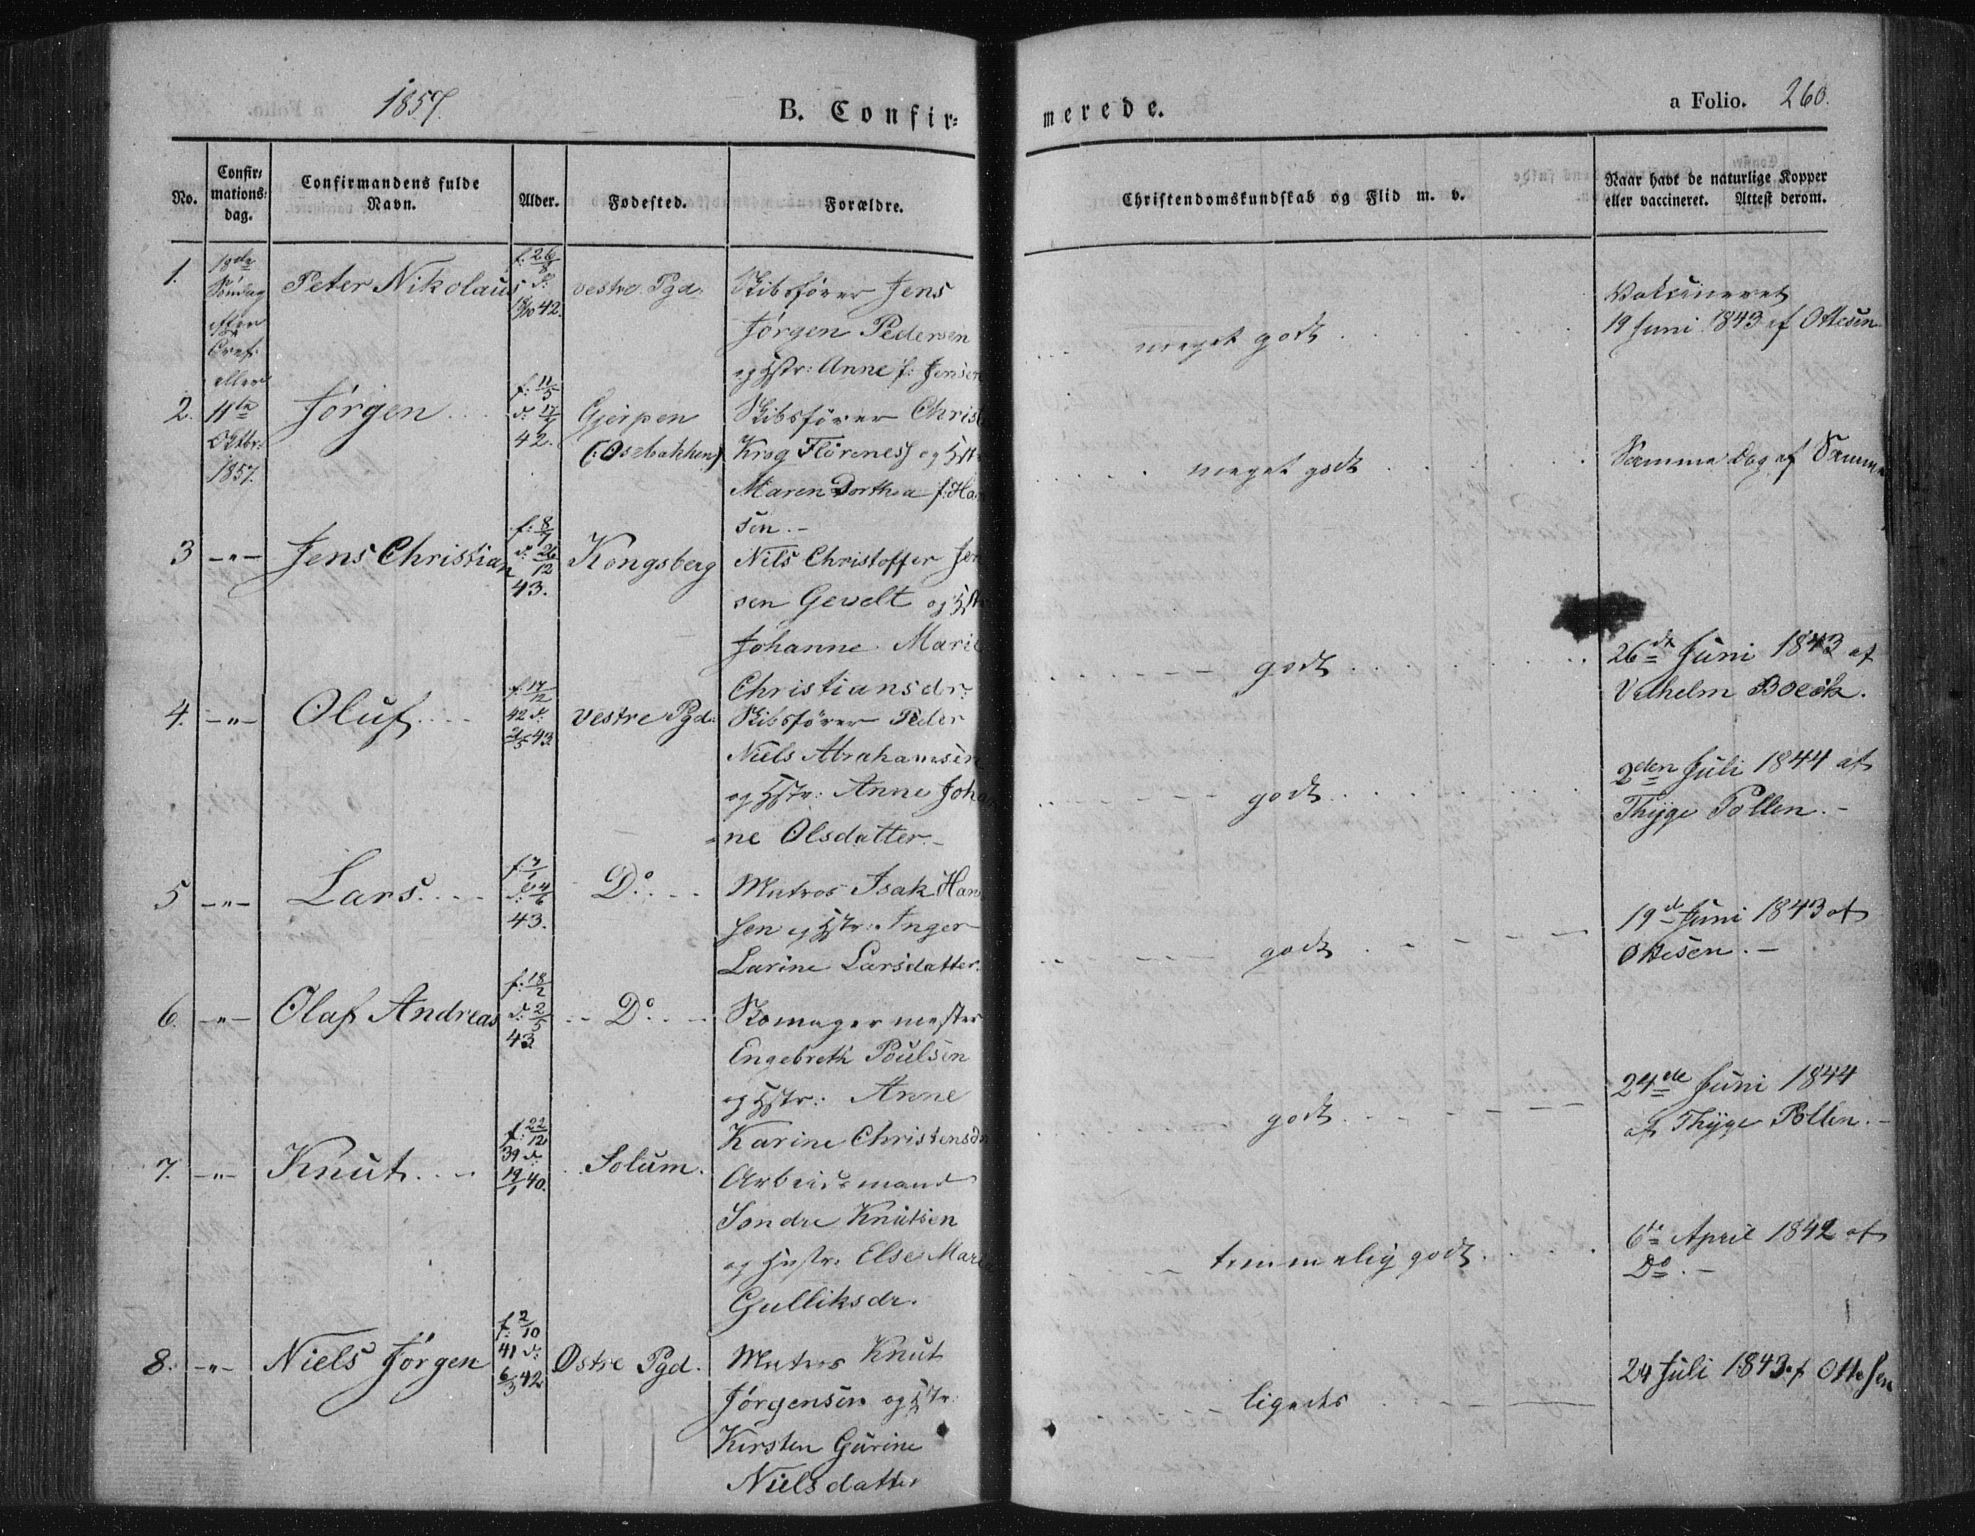 1857.
B. Confir=
merede.
a Folio. 260.
No.
Confir=
mations=
dag.
Confirmandens fulde
Navn.
Alder.
Fødested.
Forældre.
Christendomskundskab og Flid m. v.
Naar havt de naturlige Kopper
eller vaccineret. Attest derom.
1.
18de
Søndag
efter
Tref:
eller
11te
Oktbr:
1857.
Peter Nikolaus
f: 26/8
d:
42.
vestre Pgd.
Skibsfører Jens
Jørgen Pedersen
og Hstr: Anne f: Jensen
meget godt
Vaksineret
19 Juni 1843 af Ottesen
2.
Jørgen
f: 11/5
d: 17/7
42.
Gjerpen
(: Osebakken)
Skibsfører Christ
Krog Florenes og Hstr
Maren Dorthea f: Han
sen.-
meget godt
Samme dag af Samme
3 -"-
Jens Christian
f: 8/7
d: 26/12
43.
Kongsberg
Nils Christoffer Jen
sen Gevelt og Hstr
Johanne Marie
Christiansdr.
godt
26de Juni 1843 af
Vilhelm Boeck.
4. -"-
Oluf
f: 17/12
42 d:
2/5 43
vestre Pgd.
Skibsfører Peder
Niels Abrahamsen
og Hstr: Anne Johan
=ne Olsdatter.-
godt
2den Juli 1844 af
Thyge Pollen.-
5 -"-
Lars.
f: 7/1
d: 4/6
43.
Do.
Matros Isak Han
sen og Hstr: Inger
Larine Larsdatter.
godt
19de Juni 1843 af
Ottesen.-
6. -"-
Olaf Andreas
f: 18/2
d: 2/5
43
Do.
Skomagermester
Engebreth Poulsen
og Hstr: Anne
Karine Christensdr
godt
24de Juni 1844
af Thyge Pollen.-
7. -"-
Knut
f: 22/12
39 d:
19/1 40.
Solum.
Arbeidsmand
Sondre Knutsen
og Hustr: Else Mari
Gulliksdr.
temmelig godt
6te April 1842 af
Do.-
8. -"-
Niels Jørgen
f: 2/10
41 d:
6/3 42
Østre Pgd.
Matros Knut
Jørgensen og Hstr:
Kirsten Gurine
Nielsdatter
ligeds
24 Juli 1843 af Ottesen